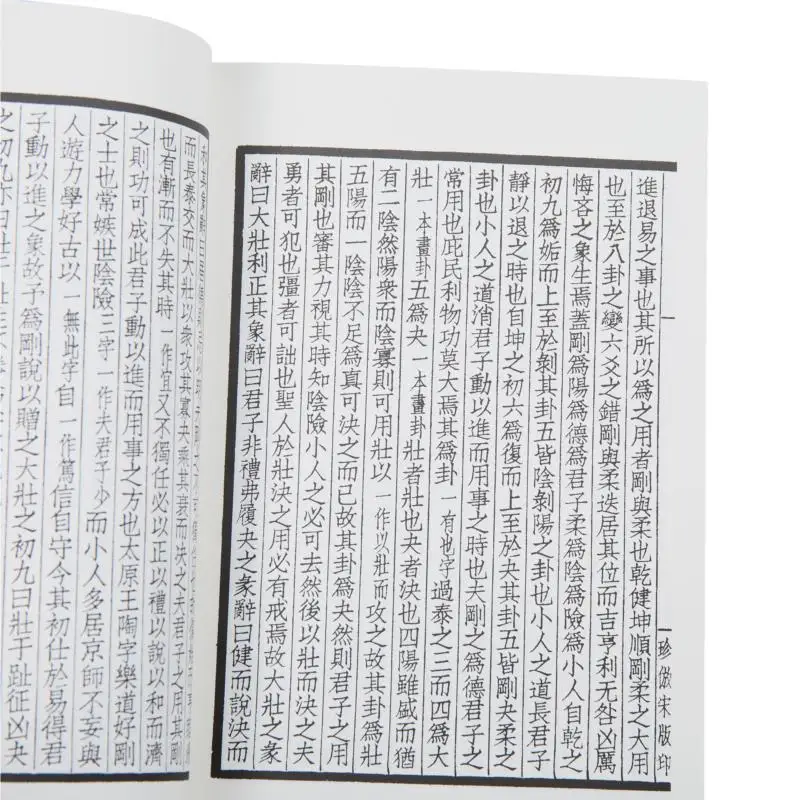 一
珍倣宋版印
進退易之事也其所以爲之用者剛與柔也乾健坤順剛柔之大用
也至於八卦之變六爻之錯剛與柔迭居其位而吉亨利无咎凶厲
悔吝之象生焉蓋剛爲陽爲德爲君子柔爲陰爲險爲小人自乾之
初九爲姤而上至於剝其卦五皆陰剝陽之卦也小人之道長君子
靜以退之時也自坤之初六爲復而上至於夬其卦五皆剛夬柔之
卦也小人之道消君子動以進而用事之時也夫剛之爲德君子之
常用也庇民利物功莫大焉其爲卦一有也字過泰之三而四爲大
壯一本畫卦五爲夬一本畫卦壯者壯也夬者決也四陽雖盛而猶
有二陰然陽衆而陰寡則可用壯以一作以壯而攻之故其卦爲壯
五陽而一陰陰不足爲真可決之而已故其卦爲夬然則君子之用
其剛也審其力視其時知陰險小人之必可去然後以壯而決之夫
勇者可犯也彊者可詘也聖人於壯決之用必有戒焉故大壯之彖
辭曰大壯利正其象辭曰君子非禮弗履夬之彖辭曰健而說決而
和其象辭曰居
而長泰交而大壯以衆攻其寡夬乘其衰而決之夫君子之用其剛
也有漸而不失其時一作宜又不獨任必以正以禮以說以和而濟
之則功可成此君子動以進而用事之方也太原王陶字樂道好剛
之士也常嫉世陰險三字一作夫君子少而小人多居京師不妄與
人遊力學好古以一無此字自一作篤信自守今其初仕於易得君
子動以進之象故予爲剛說以贈之大壯之初九曰壯于趾征凶夬
之初九亦曰壯